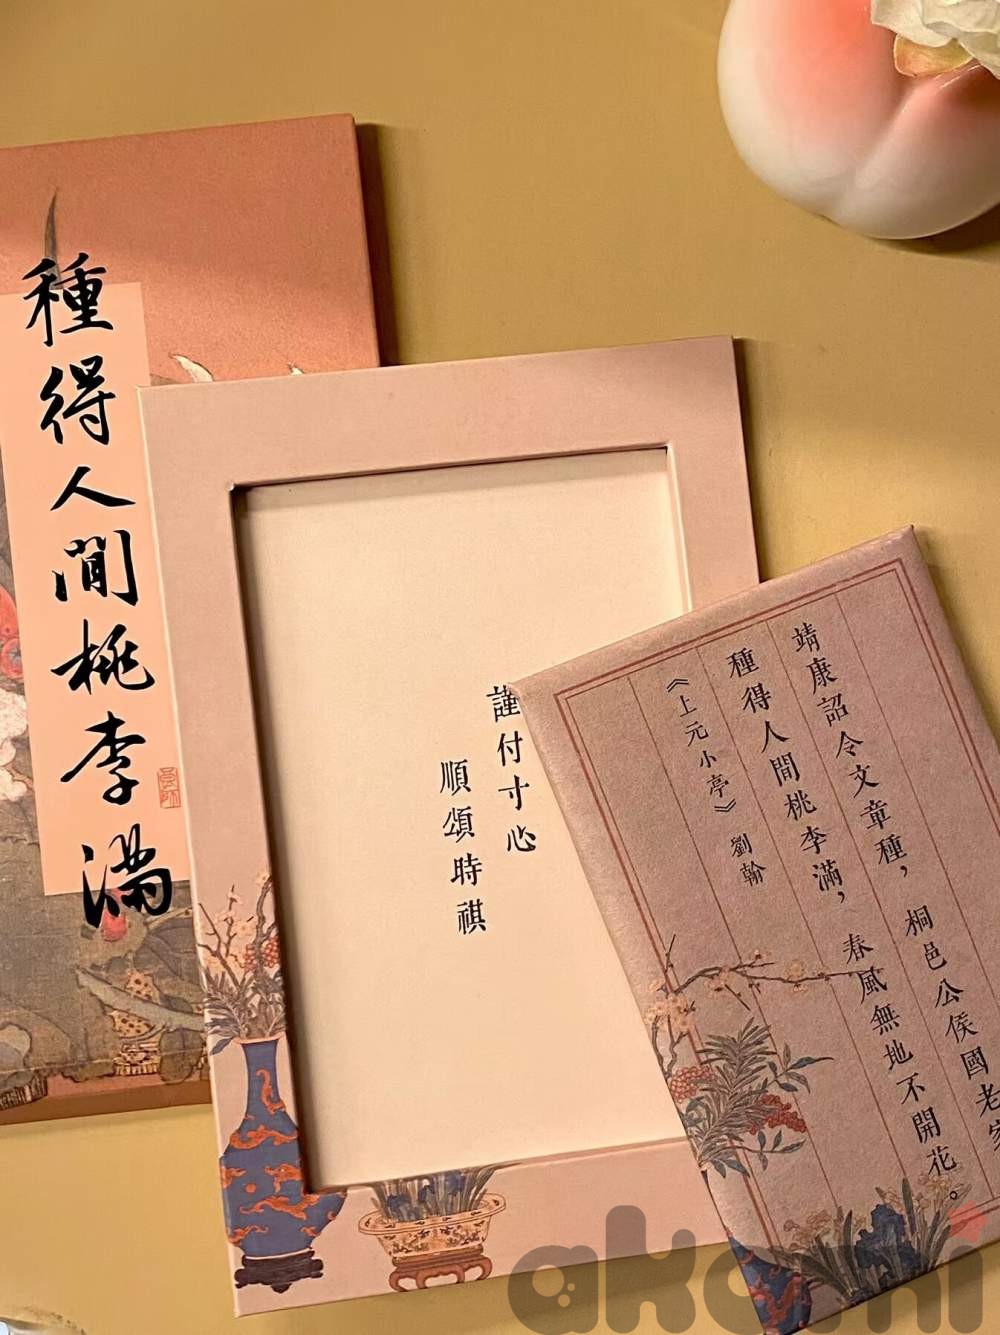 種得人間桃李滿
謹付寸心
順頌時祺
靖康詔令文章種，桐邑公侯國老
種得人間桃李滿，春風無地不開花。
《上元小亭》劉翰
akomi